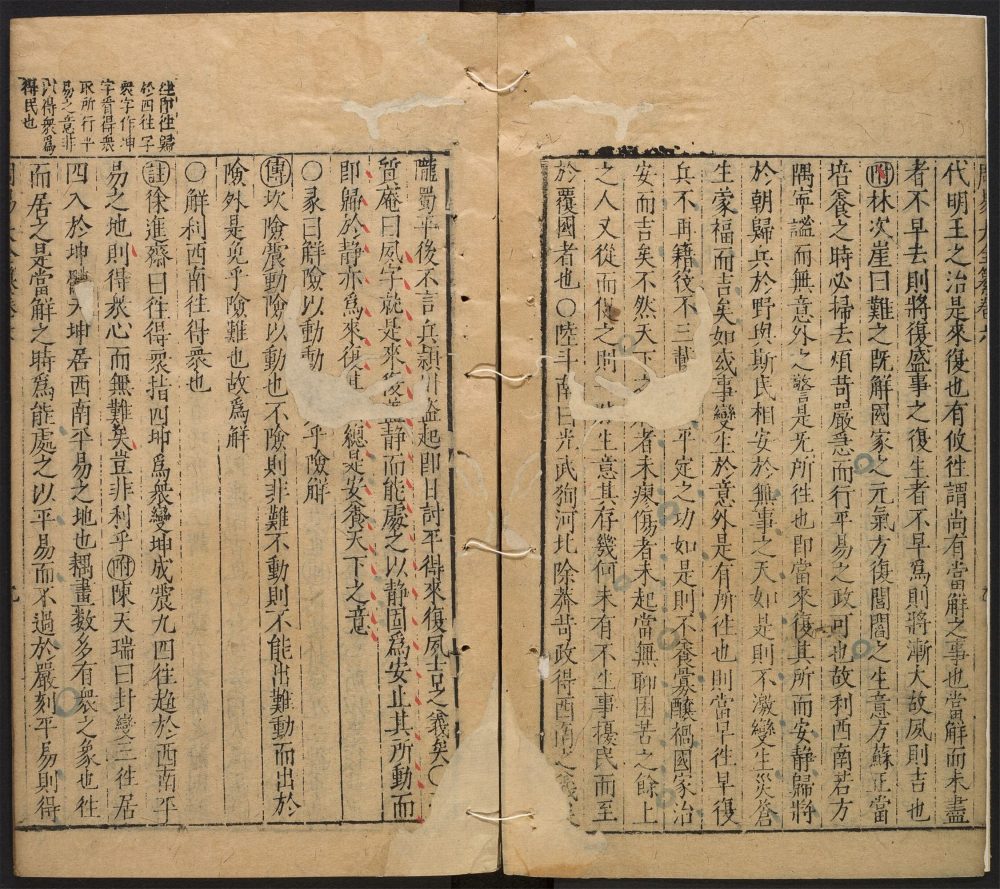 代明王之治是來復也有攸往謂尚有當解之事也當解而未盡
者不早去則將復盛事之復生者不早爲則將漸大故夙則吉也
附林次崖曰難之旣解國家之元氣方復閭閻之生意方蘇正當
培養之時必掃去煩苛嚴急而行平易之政可也故利西南若方
隅寧謐而無意外之警是旡所往也即當來復其所而安静歸將
於朝歸兵於野與斯民相安於無事之天如是則不激變生災蒼
生蒙福而吉矣如或事變生於意外是有所往也則當早往早復
兵不再籍役不三載 平定之功如是則不養釁釀禍國家治
安而吉矣不然天下 者未瘳傷者未起當無聊困苦之餘上
之人又從而 之則 生意其存幾何未有不生事擾民而至
於覆國者也○陸 南曰光武狥河北除莽苛政得西南之義
隴蜀平後不言兵潁川盜起即日討平得來復夙吉之義矣○
質庵曰夙字就是來復 静而能處之以静固爲安止其所動而
即歸於静亦爲來復 總是安養天下之意
○彖曰解險以動動 乎險解
傳坎險震動險以動也不險則非難不動則不能出難動而出於
險外是免乎險難也故爲解
○解利西南往得衆也
註徐進齋曰往得衆指四坤爲衆變坤成震九四往趨於西南平
易之地則得衆心而無難矣豈非利乎附陳天瑞曰卦變三往居
四入於坤體夫坤居西南平易之地也耦畫數多有衆之象也往
而居之是當解之時爲能處之以平易而不過於嚴刻平易則得
往即往歸
於西往字
衆字作坤
字看得衆
取所行平
易之意非
以得衆爲
得民也